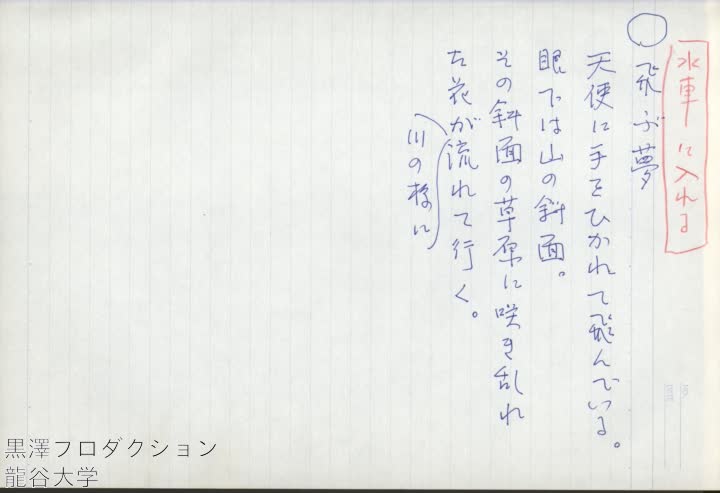 水車に入れる
○飛ぶ夢
天使に手をひかれて飛んでいる。
眼下は山の斜面。
その斜面の草原に咲き乱れ
た花が流れて行く。
川の様に
黒澤フロダクション
龍谷大学